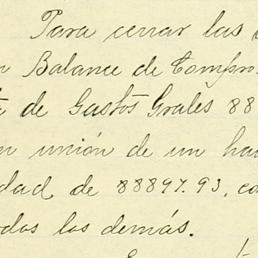 Para cerrar las
Balance de Compro
de Gastos Grales 88
unión de un ha
dad de 88897.93, co
odos los demás.